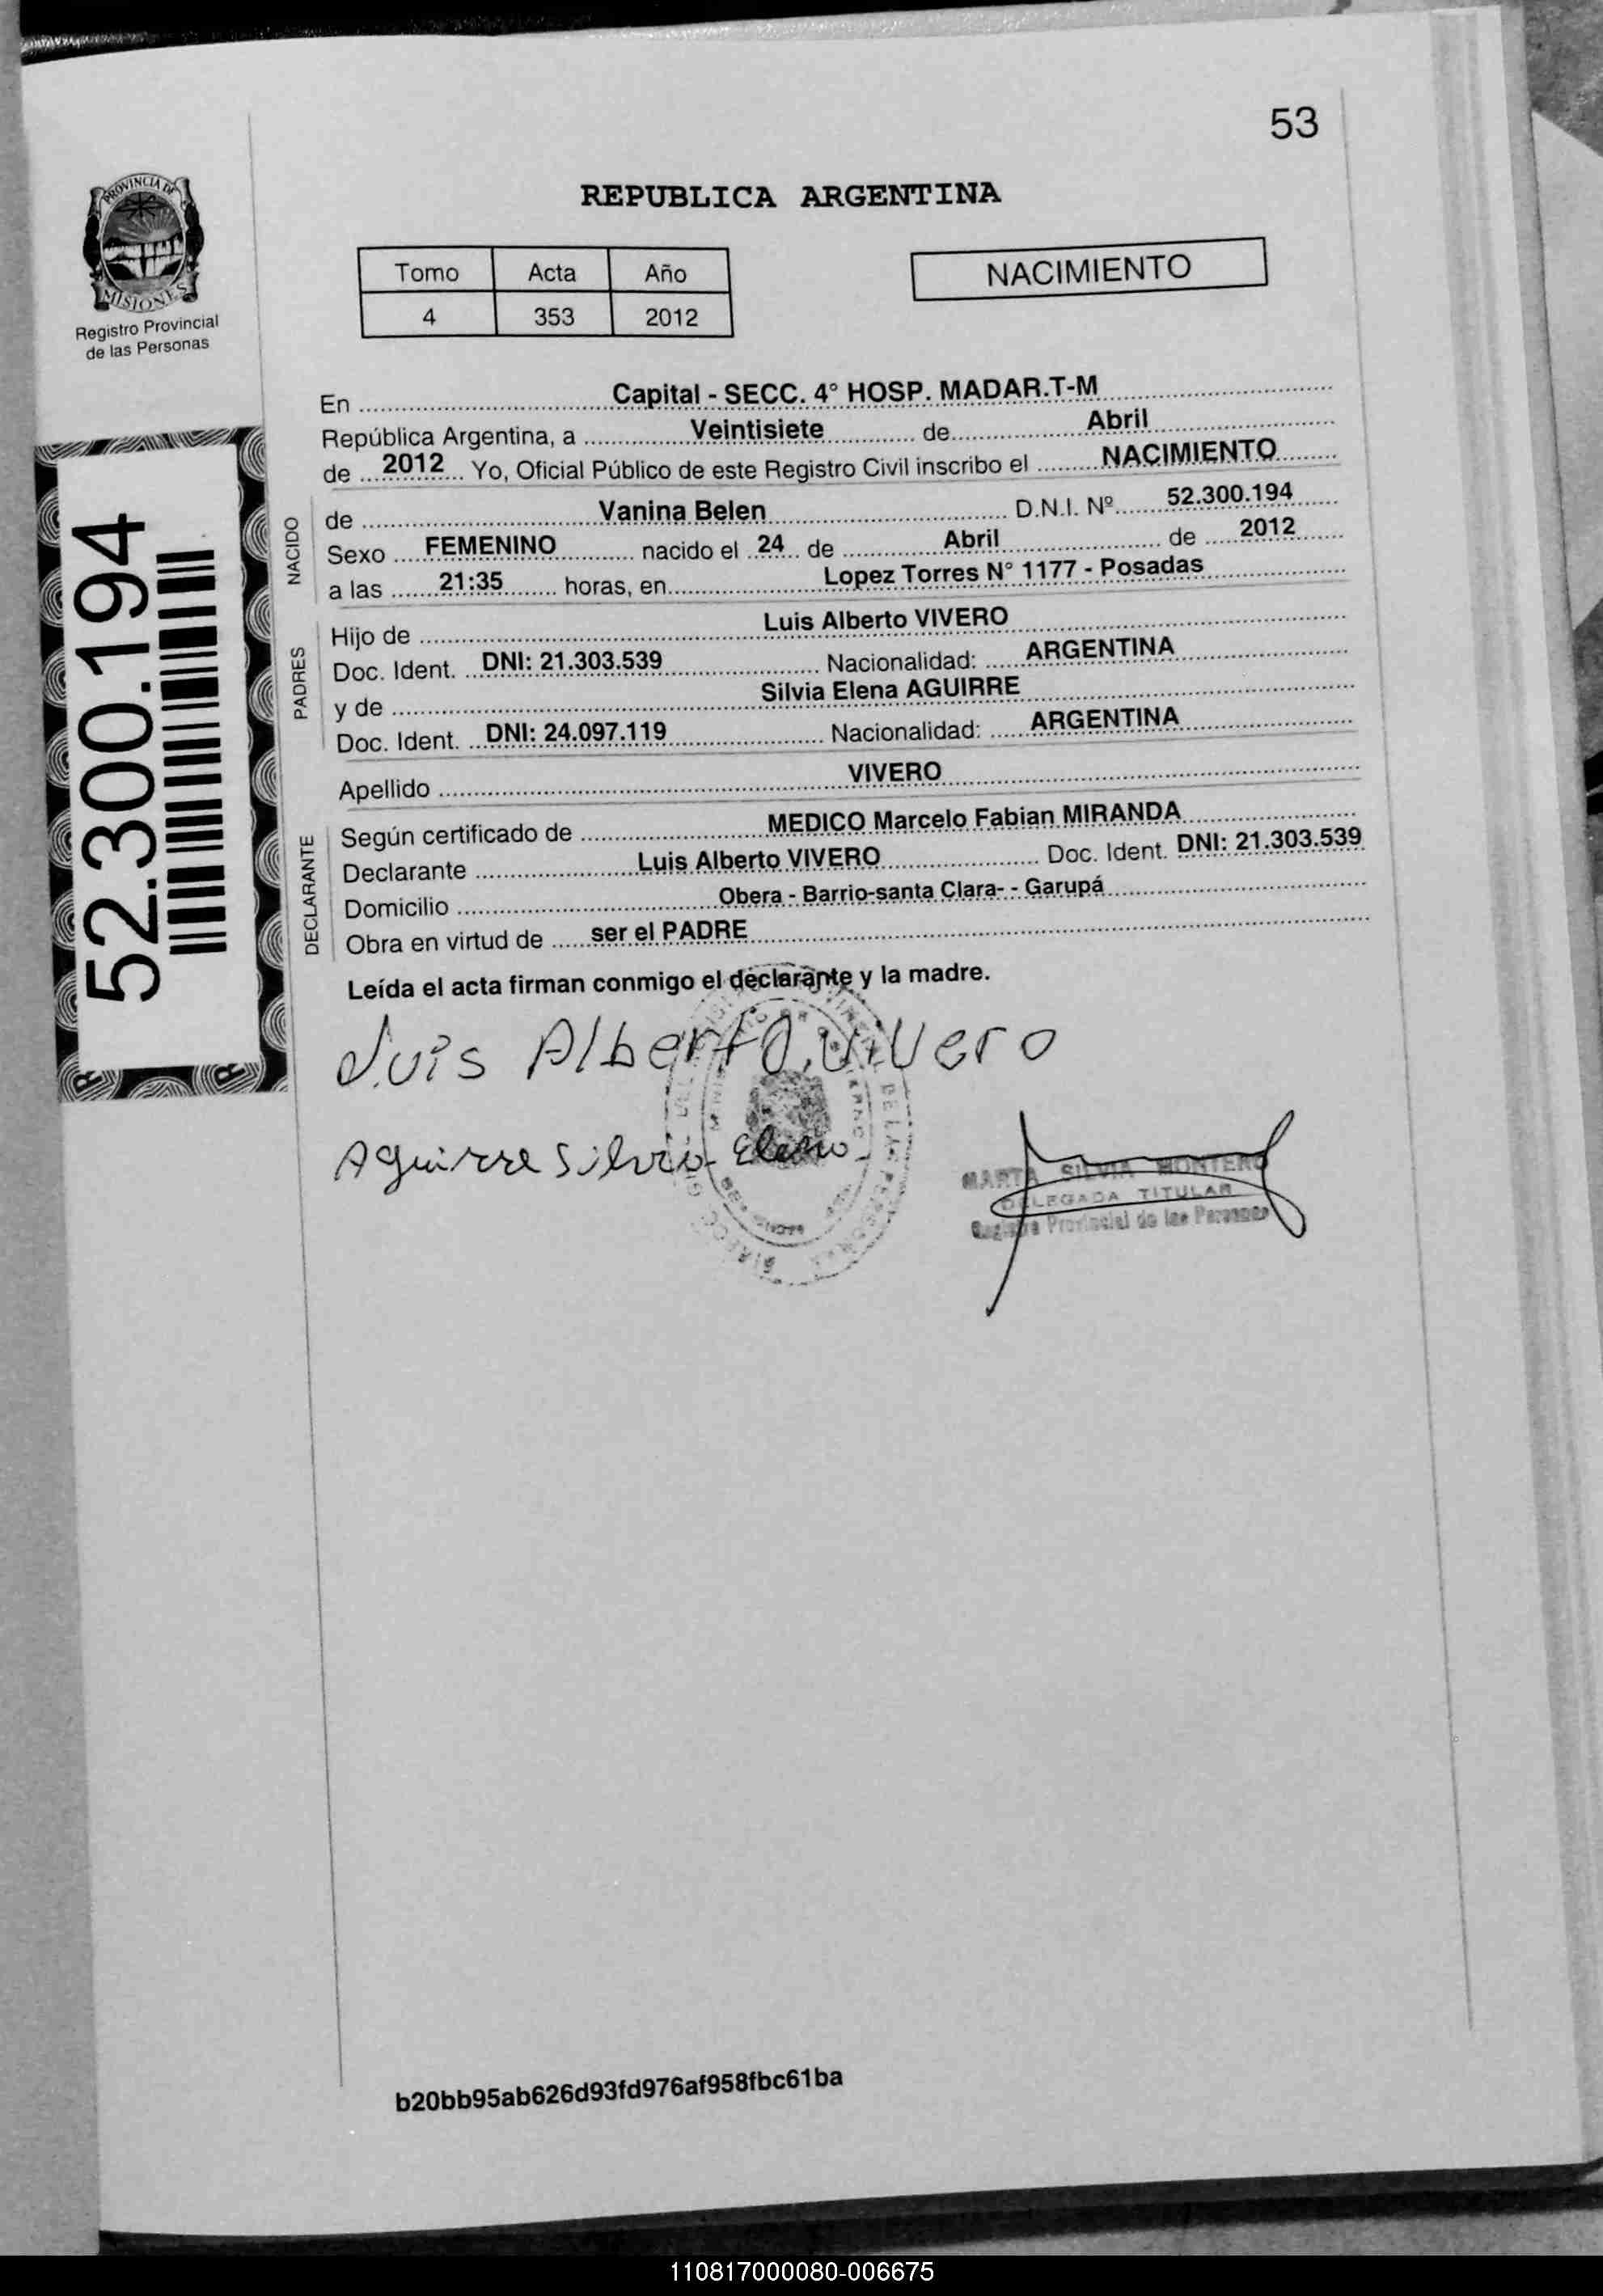 53
PROVINCIA DE
MISIONES
Registro Provincial
de las Personas
REPUBLICA ARGENTINA
Tomo Acta Año
4 353 2012
NACIMIENTO
En Capital - SECC. 4° HOSP. MADAR.T-M
República Argentina, a Veintisiete de Abril
de 2012 Yo, Oficial Público de este Registro Civil inscribo el NACIMIENTO
NACIDO
de Vanina Belen D.N.I. Nº 52.300.194
Sexo FEMENINO nacido el 24 de Abril de 2012
a las 21:35 horas, en Lopez Torres N° 1177 - Posadas
PADRES
Hijo de Luis Alberto VIVERO
Doc. Ident. DNI: 21.303.539 Nacionalidad: ARGENTINA
y de Silvia Elena AGUIRRE
Doc. Ident. DNI: 24.097.119 Nacionalidad: ARGENTINA
Apellido VIVERO
DECLARANTE
Según certificado de MEDICO Marcelo Fabian MIRANDA
Declarante Luis Alberto VIVERO Doc. Ident. DNI: 21.303.539
Domicilio Obera - Barrio-santa Clara- - Garupá
Obra en virtud de ser el PADRE
Leída el acta firman conmigo el declarante y la madre.
Luis Alberto Vivero
Aguirre Silvia Elena
MARTA SILVIA MONTERO
DELEGADA TITULAR
Registro Provincial de las Personas
52.300.194
b20bb95ab626d93fd976af958fbc61ba
110817000080-006675